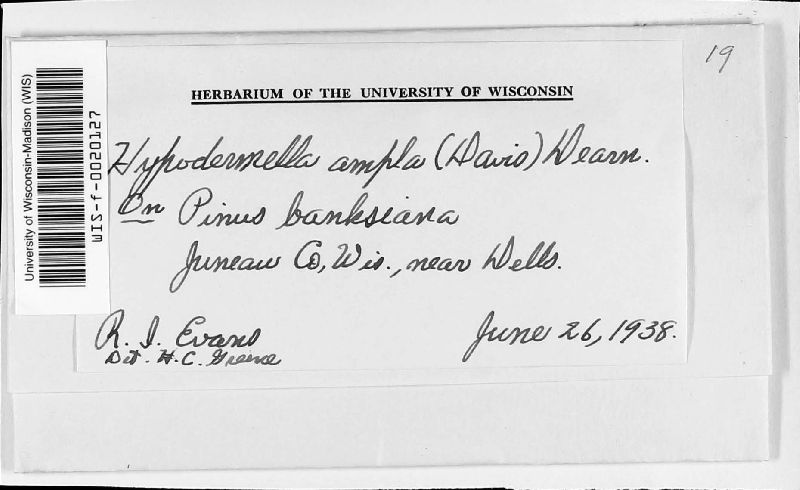 19
HERBARIUM OF THE UNIVERSITY OF WISCONSIN
University of Wisconsin-Madison (WIS)
WIS-f-0020127
Hypodermella ampla (Davis) Dearn.
On Pinus banksiana
Juneau Co, Wis., near Dells.
R. I. Evans
June 26, 1938.
Det. H.C. Greene